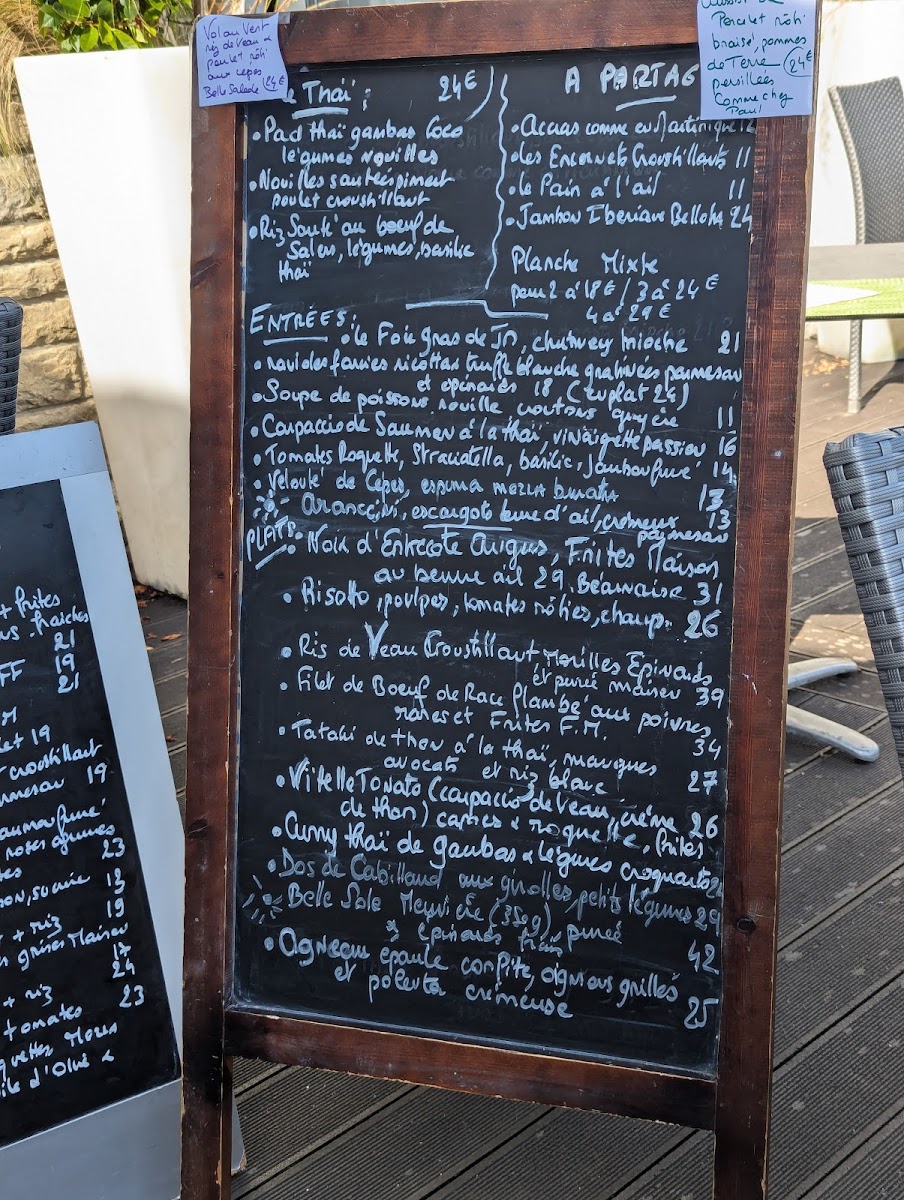 Vol au Vent
riz de veau &
poulet rôti
aux cèpes
Belle Salade 24€
Poulet rôti
braisé, pommes
de Terre 24€
persillées
Comme chez
Paul
Thaï : 24€
• Pad thaï gambas Coco
légumes nouilles
• Nouilles sautées piment
poulet croustillant
• Riz Sauté au boeuf de
Salers, légumes, basilic
thaï
A PARTAG
• Accras comme en Martinique 12
• Les Encornets Croustillants 11
• Le Pain à l'ail 11
• Jambon Iberian Bellota 24
Planche Mixte
pour 2 à 18€ / 3 à 24€
4 à 29€
ENTRÉES :
• le Foie gras de , chutney brioche 21
• ravioles farcies ricotta truffe blanche gratinées parmesan
et épinards 18 (en plat 24)
• Soupe de poissons rouille croutons gruyère 11
• Carpaccio de Saumon à la thaï, vinaigrette passion 16
• Tomates Roquette, Straciatella, basilic, Jambon fumé 14
• Velouté de Cèpes, espuma mozza burrata 13
Arancini, escargots beurre d'ail, crémeux 13
parmesan
PLATS :
• Noix d'Entrecôte Angus, Frites Maison
au beurre ail 29. Béarnaise 31
• Risotto, poulpes, tomates rôties, champ. 26
• Ris de Veau Croustillant Morilles Epinards
et purée maison 39
• Filet de Boeuf de Race Flambé aux poivres
rares et Frites F.M. 34
• Tataki de thon à la thaï, mangues
avocats et riz blanc 27
• Vitello Tonato (carpaccio de veau, crème
de thon) capres & roquette, frites 26
• Curry thaï de gambas & légumes croquants 24
• Dos de Cabillaud aux girolles, petits légumes 29
Belle Sole Meunière (350g), purée
& épinards frais 42
• Agneau épaule confite, oignons grillés
et polenta crémeuse 25
+ frites
fraiches
21
FF 19
21
M
let 19
croustillant
19
fumé
roses agrumes
23
13
19
+ riz
Maison
17
24
+ riz
tomates 23
d'Olive &